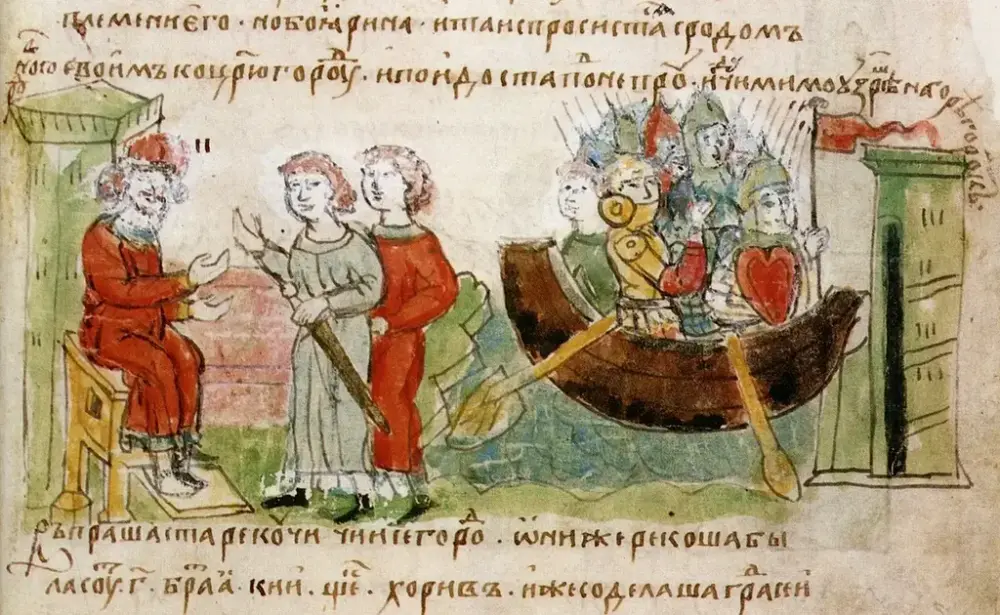 племени его · но боѧрина · и таиспросистасѧ сродомъ
своимъ коцр҃югородⷹ · ипоидоста понепрⷹ · идꙋчи мимо узрѣ на горѣ городокъ
въпрашаста рекочи чиисегороⷣ · ѡниже рекоша бы
ла соуⷮ · г҃ · братⷶа · кии · щекⷺ · хоривъ · иже соделаша градⷪсеи